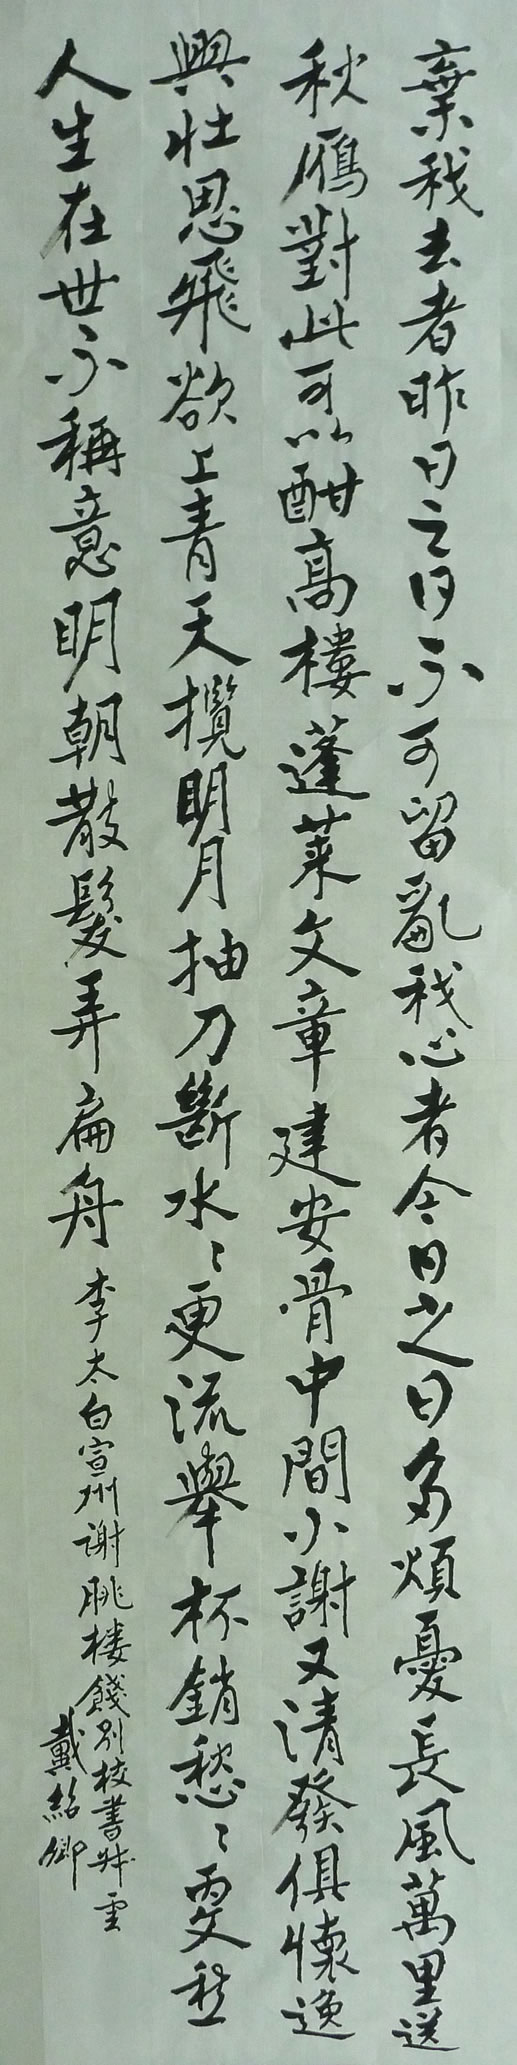 棄我去者昨日之日不可留亂我心者今日之日多煩憂長風萬里送
秋鴈對此可以酣高樓蓬萊文章建安骨中間小謝又清發俱懷逸
興壯思飛欲上青天攬明月抽刀斷水〻更流舉杯銷愁〻更愁
人生在世不稱意明朝散髮弄扁舟
李太白宣州謝朓樓餞別校書叔雲
戴紹卿